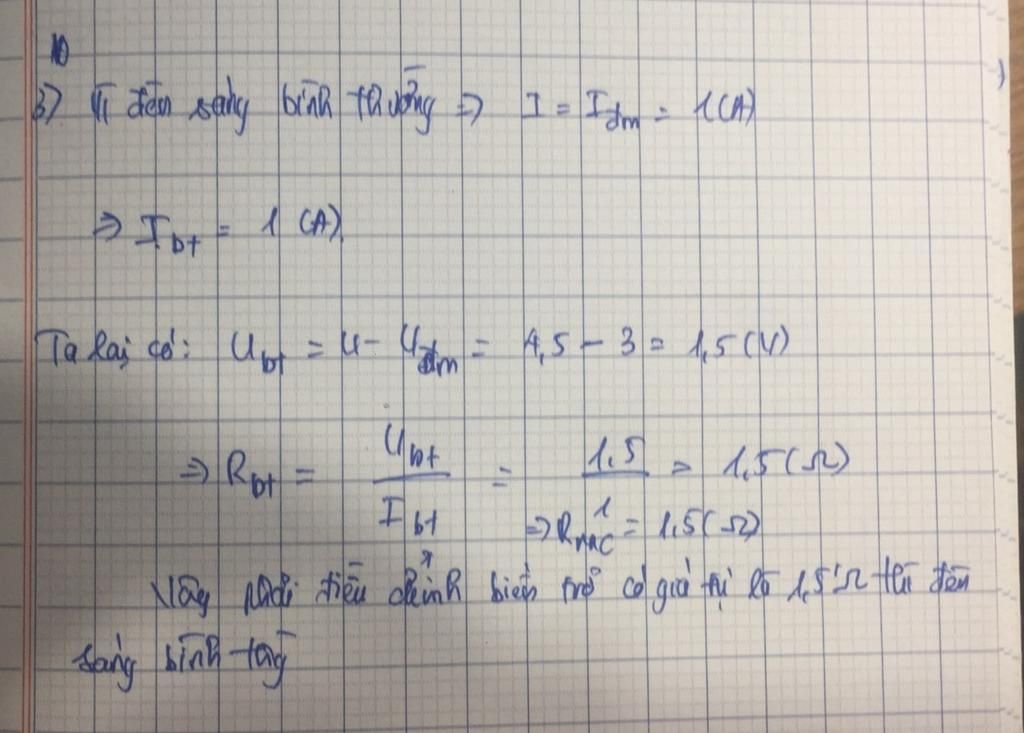 10
b) Vì đèn sáng bình thường => I = Iđm = 1(A)
=> Ibt = 1 (A)
Ta lại có: Ubt = U - Uđm = 4,5 - 3 = 1,5 (V)
=> Rbt = Ubt / Ibt = 1,5 / 1 = 1,5 (Ω)
=> RMC = 1,5 (Ω)
Vậy phải điều chỉnh biến trở có giá trị là 1,5 Ω thì đèn
sáng bình tg